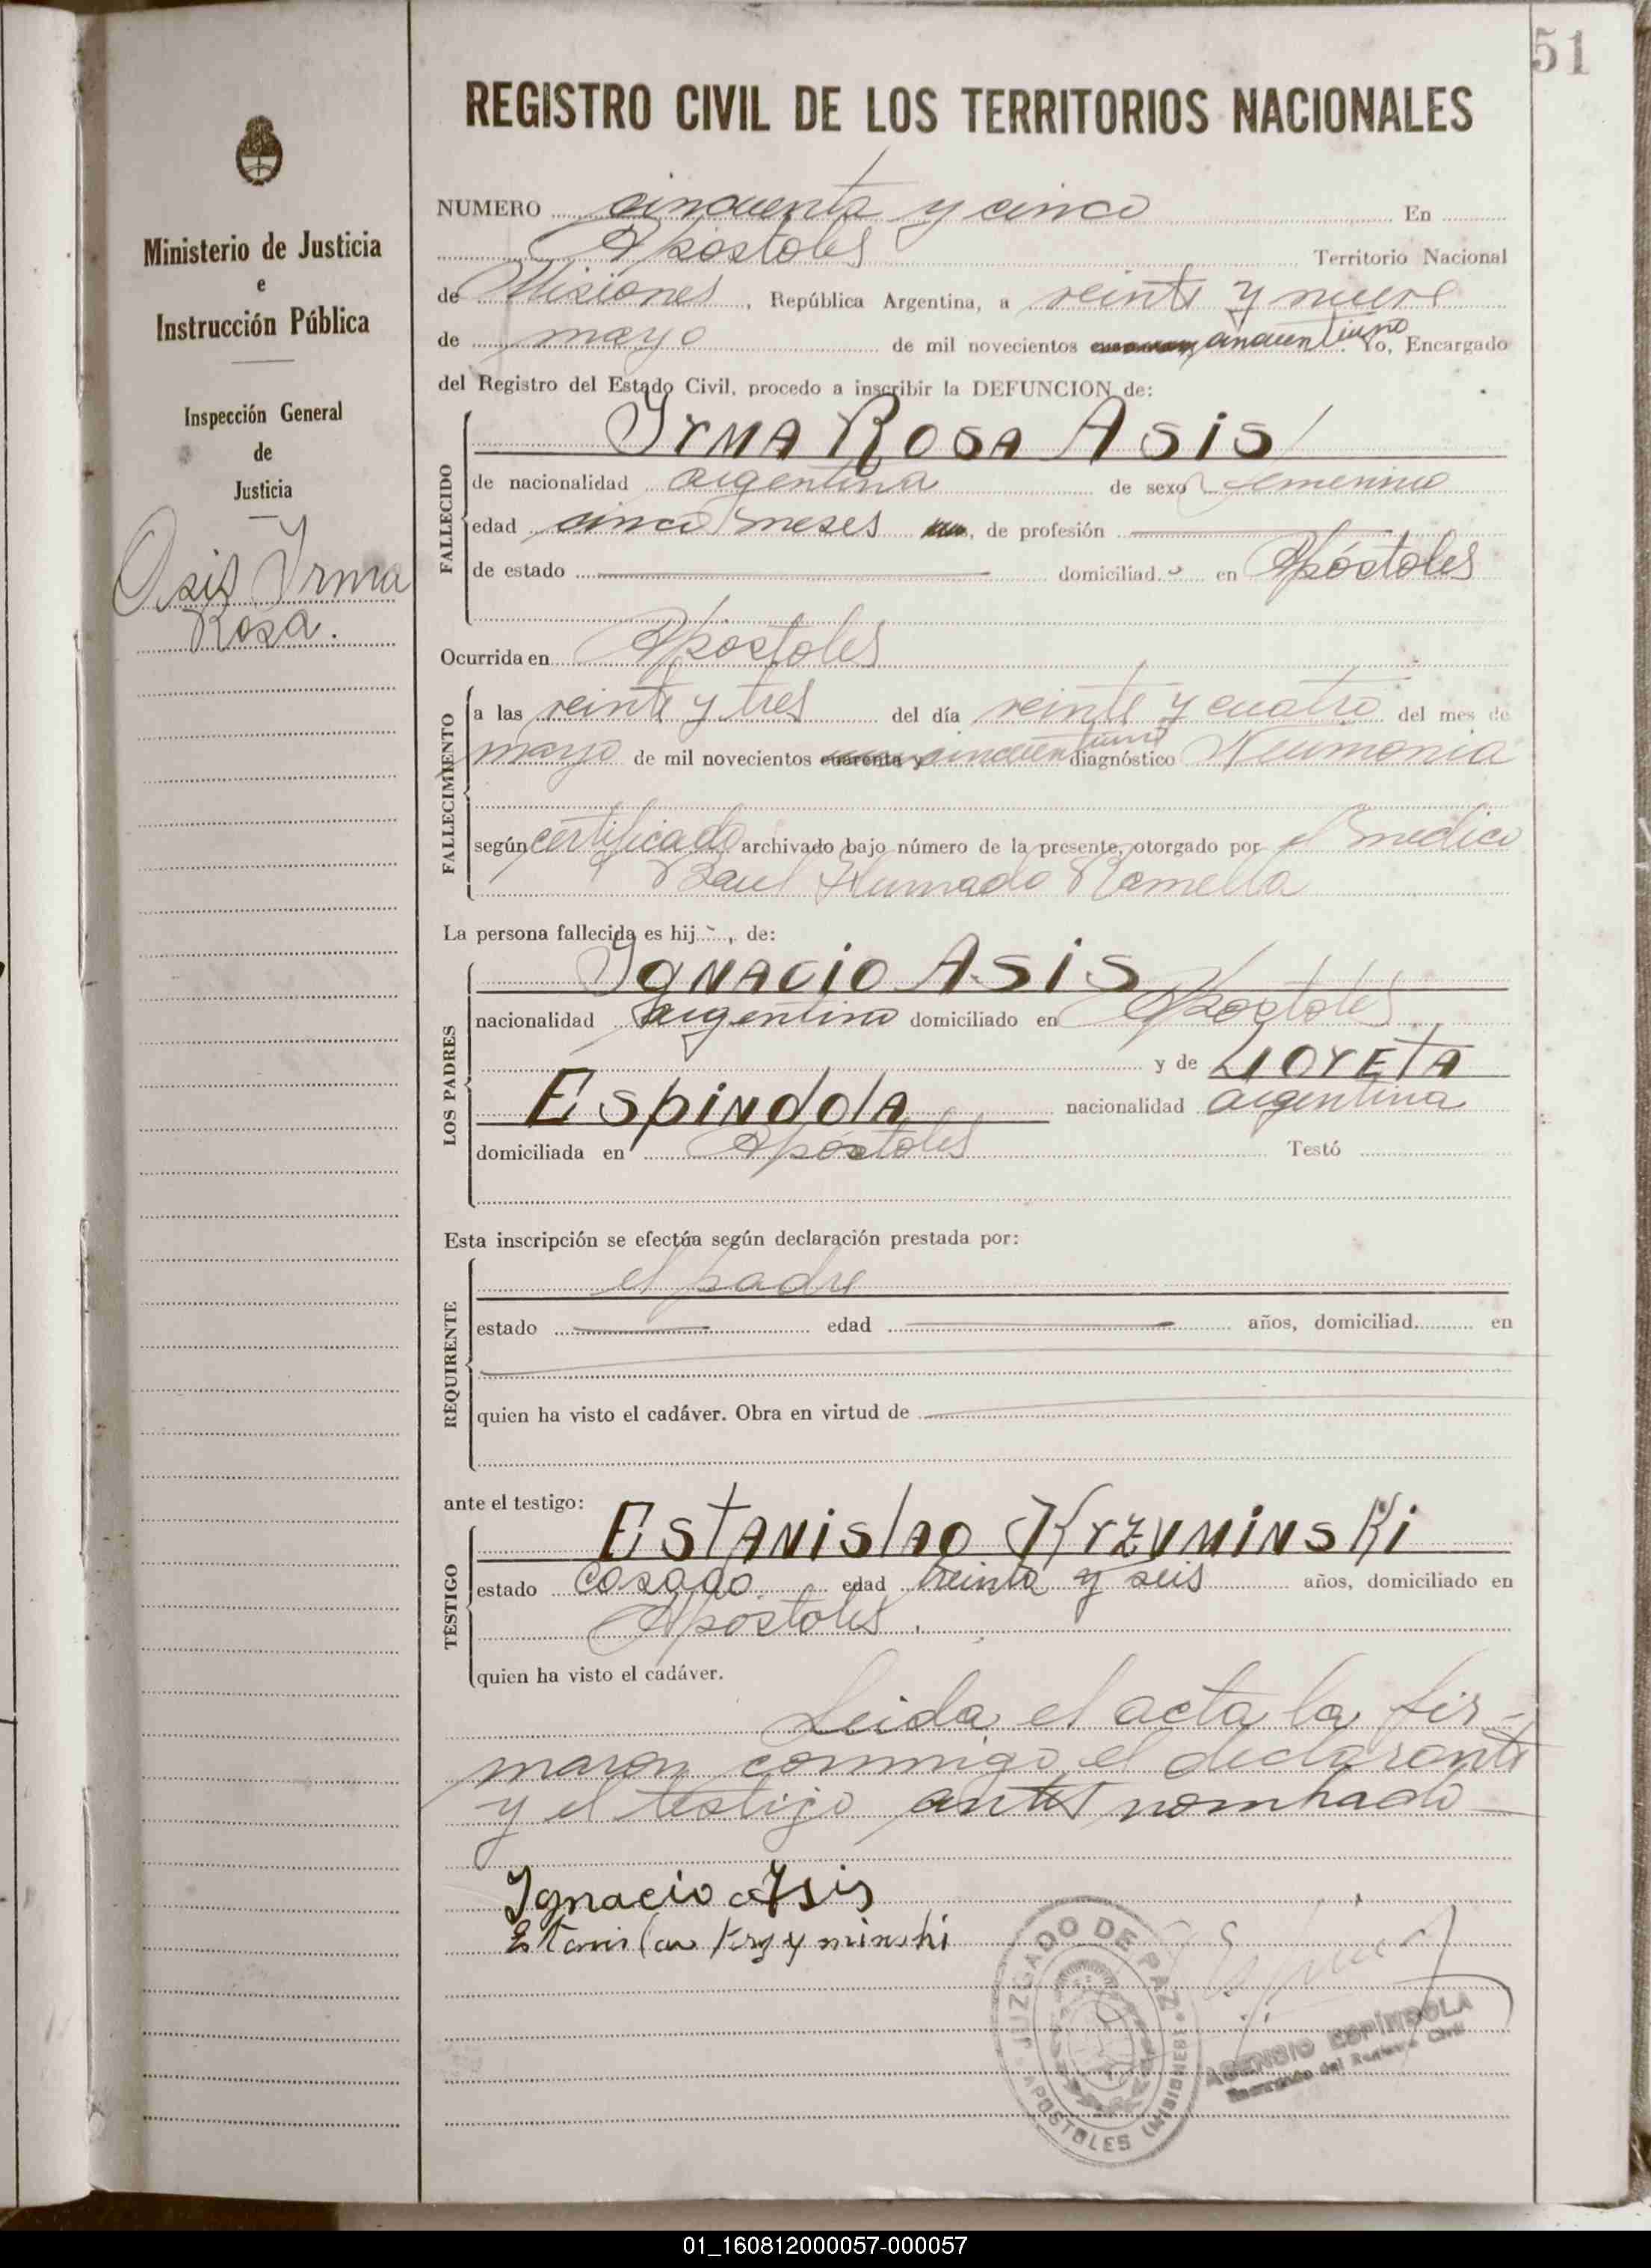 51
REGISTRO CIVIL DE LOS TERRITORIOS NACIONALES
Ministerio de Justicia
e
Instrucción Pública
Inspección General
de
Justicia
Asis Irma
Rosa.
NUMERO cincuenta y cinco En
Apóstoles Territorio Nacional
de Misiones, República Argentina, a veinte y nueve
de mayo de mil novecientos cincuentiuno Yo, Encargado
del Registro del Estado Civil, procedo a inscribir la DEFUNCION de:
FALLECIDO
Irma Rosa Asis
de nacionalidad argentina de sexo femenino
edad cinco meses, de profesión
de estado domiciliad en Apóstoles
Ocurrida en Apóstoles
FALLECIMIENTO
a las veinte y tres del día veinte y cuatro del mes de
mayo de mil novecientos cuarenta y cincuentiuno diagnóstico Neumonia
según certificado archivado bajo número de la presente, otorgado por el medico
Raul Ramella
La persona fallecida es hij, de:
LOS PADRES
Ignacio Asis
nacionalidad argentino domiciliado en Apostoles
y de Lloreta
Espindola nacionalidad argentina
domiciliada en Apóstoles Testó
Esta inscripción se efectúa según declaración prestada por:
REQUIRENTE
el padre
estado edad años, domiciliad en
quien ha visto el cadáver. Obra en virtud de
ante el testigo:
TESTIGO
Estanislao Krzyminski
estado casado edad treinta y seis años, domiciliado en
Apostoles.
quien ha visto el cadáver.
Leida el acta la fir-
maron conmigo el declarante
y el testigo antes nombrado
Ignacio Asis
Estanislao Krzyminski
JUZGADO DE PAZ
APOSTOLES (MISIONES)
ASENSIO ESPÍNDOLA
Encargado del Registro Civil
01_160812000057-000057